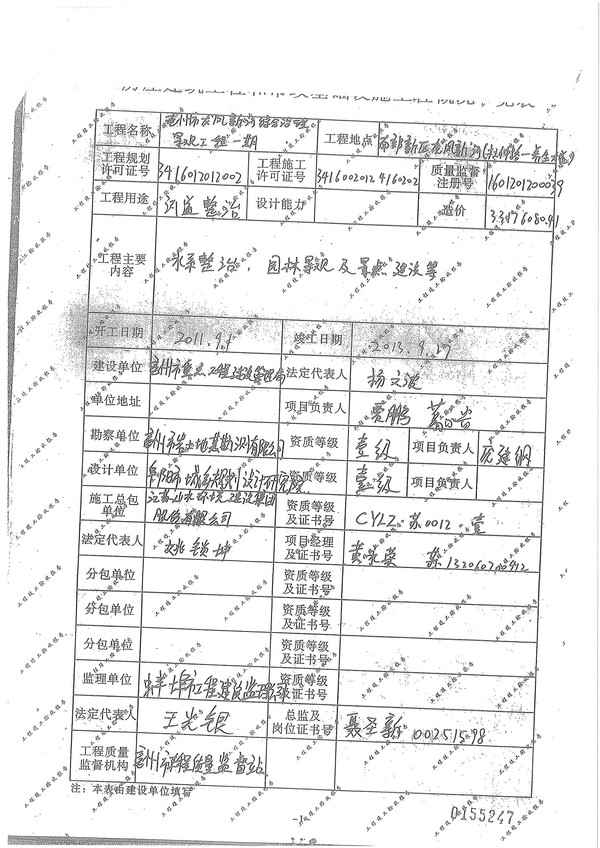 房屋建筑工程和市政基础设施工程概况一览表
工程名称 亳州市龙凤新河综合治理 景观工程一期 工程地点 南部新区龙凤新河
工程规划许可证号 3416012012002 工程施工许可证号 3416002012 4160202 质量监督注册号 1601201200039
工程用途 河道整治 设计能力 造价
工程主要内容 水系整治、园林景观及景点建设等
开工日期 2011.9.1 竣工日期 2013.9.29
建设单位 亳州市重点工程建设管理局 法定代表人 杨文
单位地址 项目负责人 贾鹏
勘察单位 亳州市 有限公司 资质等级 壹级 项目负责人
设计单位 阜阳市城乡规划设计研究院 资质等级 壹级 项目负责人
施工总包单位 江苏山水环境建设集团股份有限公司 资质等级及证书号 CYLZ·苏0012·壹
法定代表人 姚锁坤 项目经理及证书号 黄 苏
分包单位 资质等级及证书号
分包单位 资质等级及证书号
分包单位 资质等级及证书号
监理单位 蚌埠市工程建设监理
法定代表人 王光银 总监及岗位证书号 聂圣新 00251598
工程质量监督机构 亳州市工程质量监督站
注：本表由建设单位填写
-1-
0155247
工程竣工验收报告